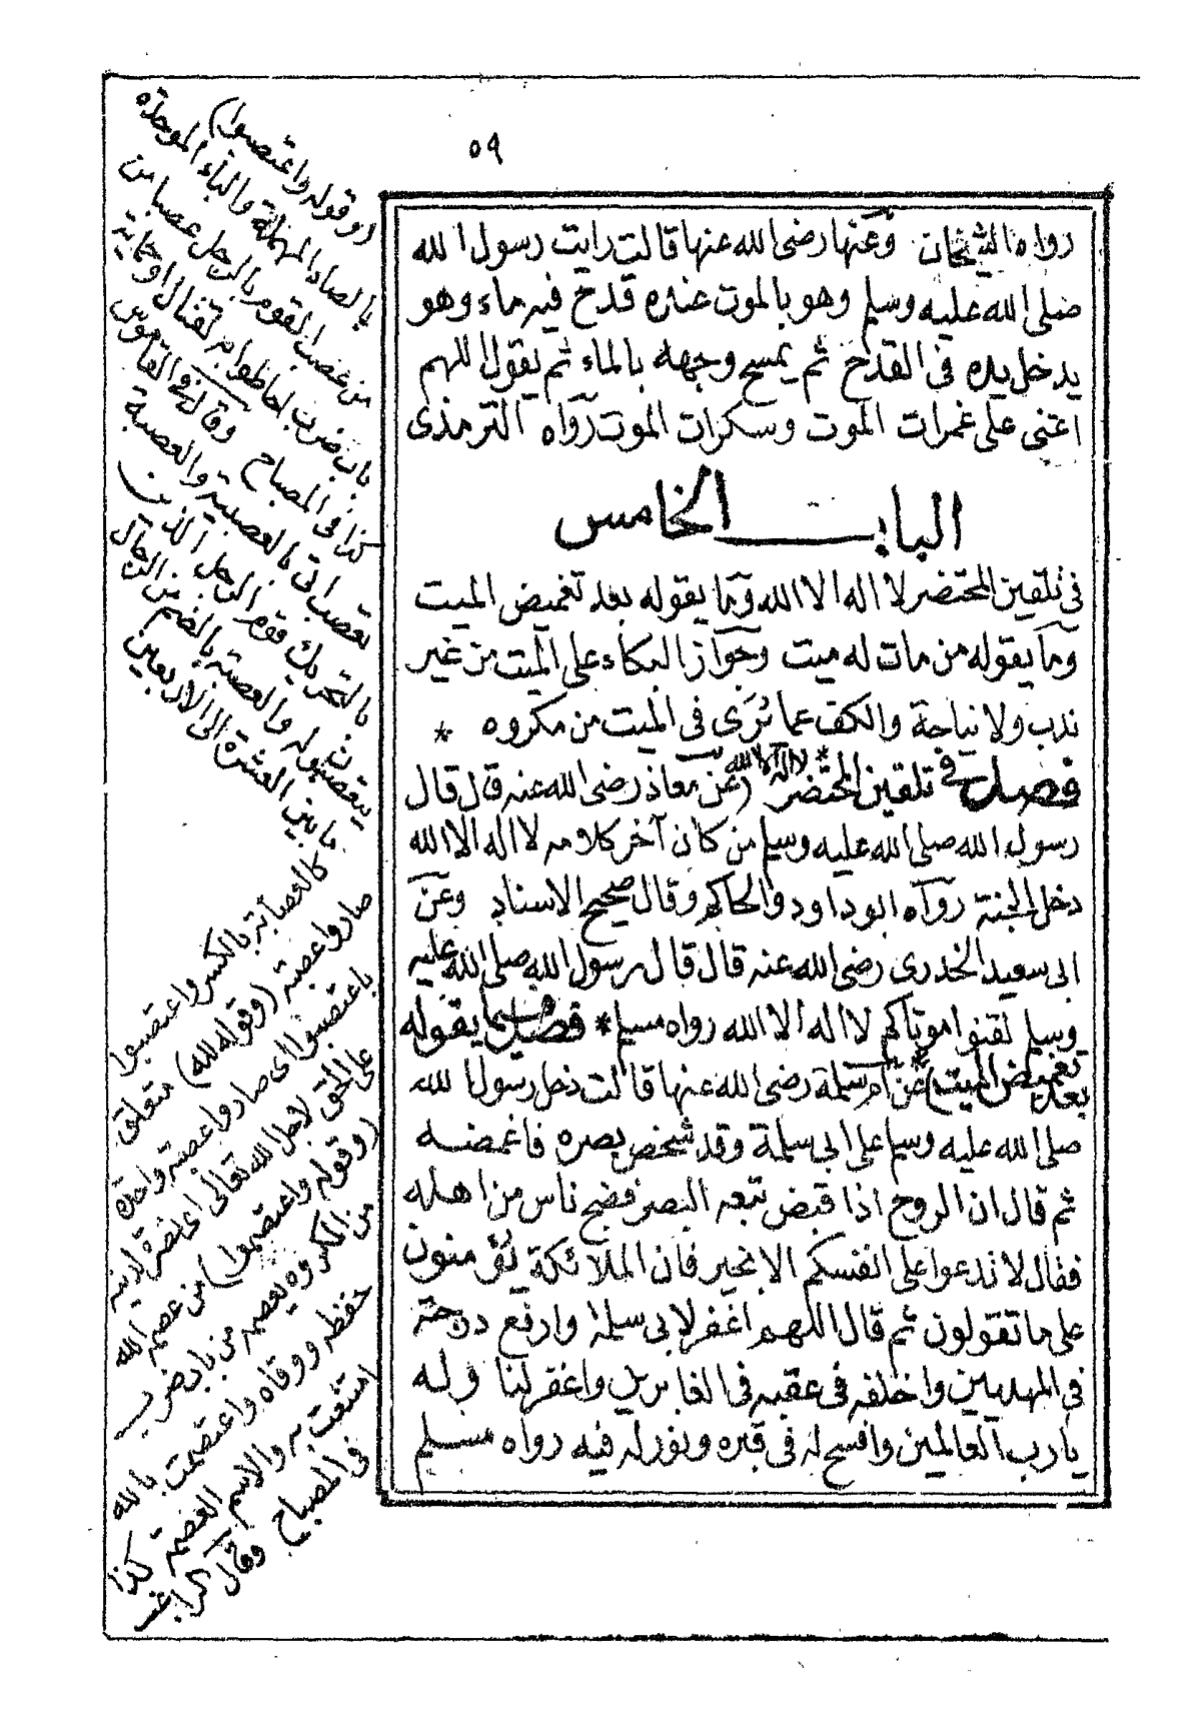 ٥٩
رواه الشيخان وعنها رضى الله عنها قالت رايت رسول الله
صلى الله عليه وسلم وهو بالموت عنده قدح فيه ماء وهو
يدخل يده فى القدح ثم يمسح وجهه بالماء ثم يقول اللهم
اعنى على غمرات الموت وسكرات الموت رواه الترمذى
الباب الخامس
فى تلقين المحتضر لا اله الا الله وما يقوله بعد تغميض الميت
وما يقوله من مات له ميت وجواز البكاء على الميت من غير
ندب ولا نياحة والكف عما يُرَى فى الميت من مكروه *
فصل فى تلقين المحتضر * لا اله الا الله (عن معاذ رضى الله عنه قال قال
رسول الله صلى الله عليه وسلم من كان آخر كلامه لا اله الا الله
دخل الجنة رواه ابو داود والحاكم وقال صحيح الاسناد وعن
ابى سعيد الخدرى رضى الله عنه قال قال رسول الله صلى الله عليه
وسلم لقنوا موتاكم لا اله الا الله رواه مسلم * فصل فيما يقوله
بعد تغميض الميت) * عن ام سلمة رضى الله عنها قالت دخل رسول الله
صلى الله عليه وسلم على ابى سلمة وقد شخص بصره فاغمضه
ثم قال ان الروح اذا قبض تبعه البصر فضج ناس من اهله
فقال لا تدعوا على انفسكم الا بخير فان الملائكة يؤمنون
على ما تقولون ثم قال اللهم اغفر لابى سلمة وارفع درجته
فى المهديين واخلفه فى عقبه فى الغابرين واغفر لنا وله
يا رب العالمين وافسح له فى قبره ونور له فيه رواه مسلم
(وقوله واعتصبوا)
بالصاد المهملة والباء الموحدة
من عصب القوم بالرجل عصبا من
باب ضرب احاطوا به لقتال او حماية
كذا فى المصباح وقال فى القاموس
تعصب اتى بالعصبية والعصبة
بالتحريك قوم الرجل الذين
يتعصبون له والعصبة بالضم من الرجال
ما بين العشرة الى الاربعين
كالعصابة بالكسر واعتصبوا
صاروا عصبة (وقوله لله) متعلق
باعتصبوا اى صاروا عصبة واحدة
على الحق لاجل الله تعالى اى لنصرة لدينه
(وقوله واعتصموا) من عصمه الله
من المكروه يعصمه من باب ضرب
حفظه ووقاه واعتصمت بالله
امتنعت به والاسم العصمة كذا
فى المصباح وقال الراغب